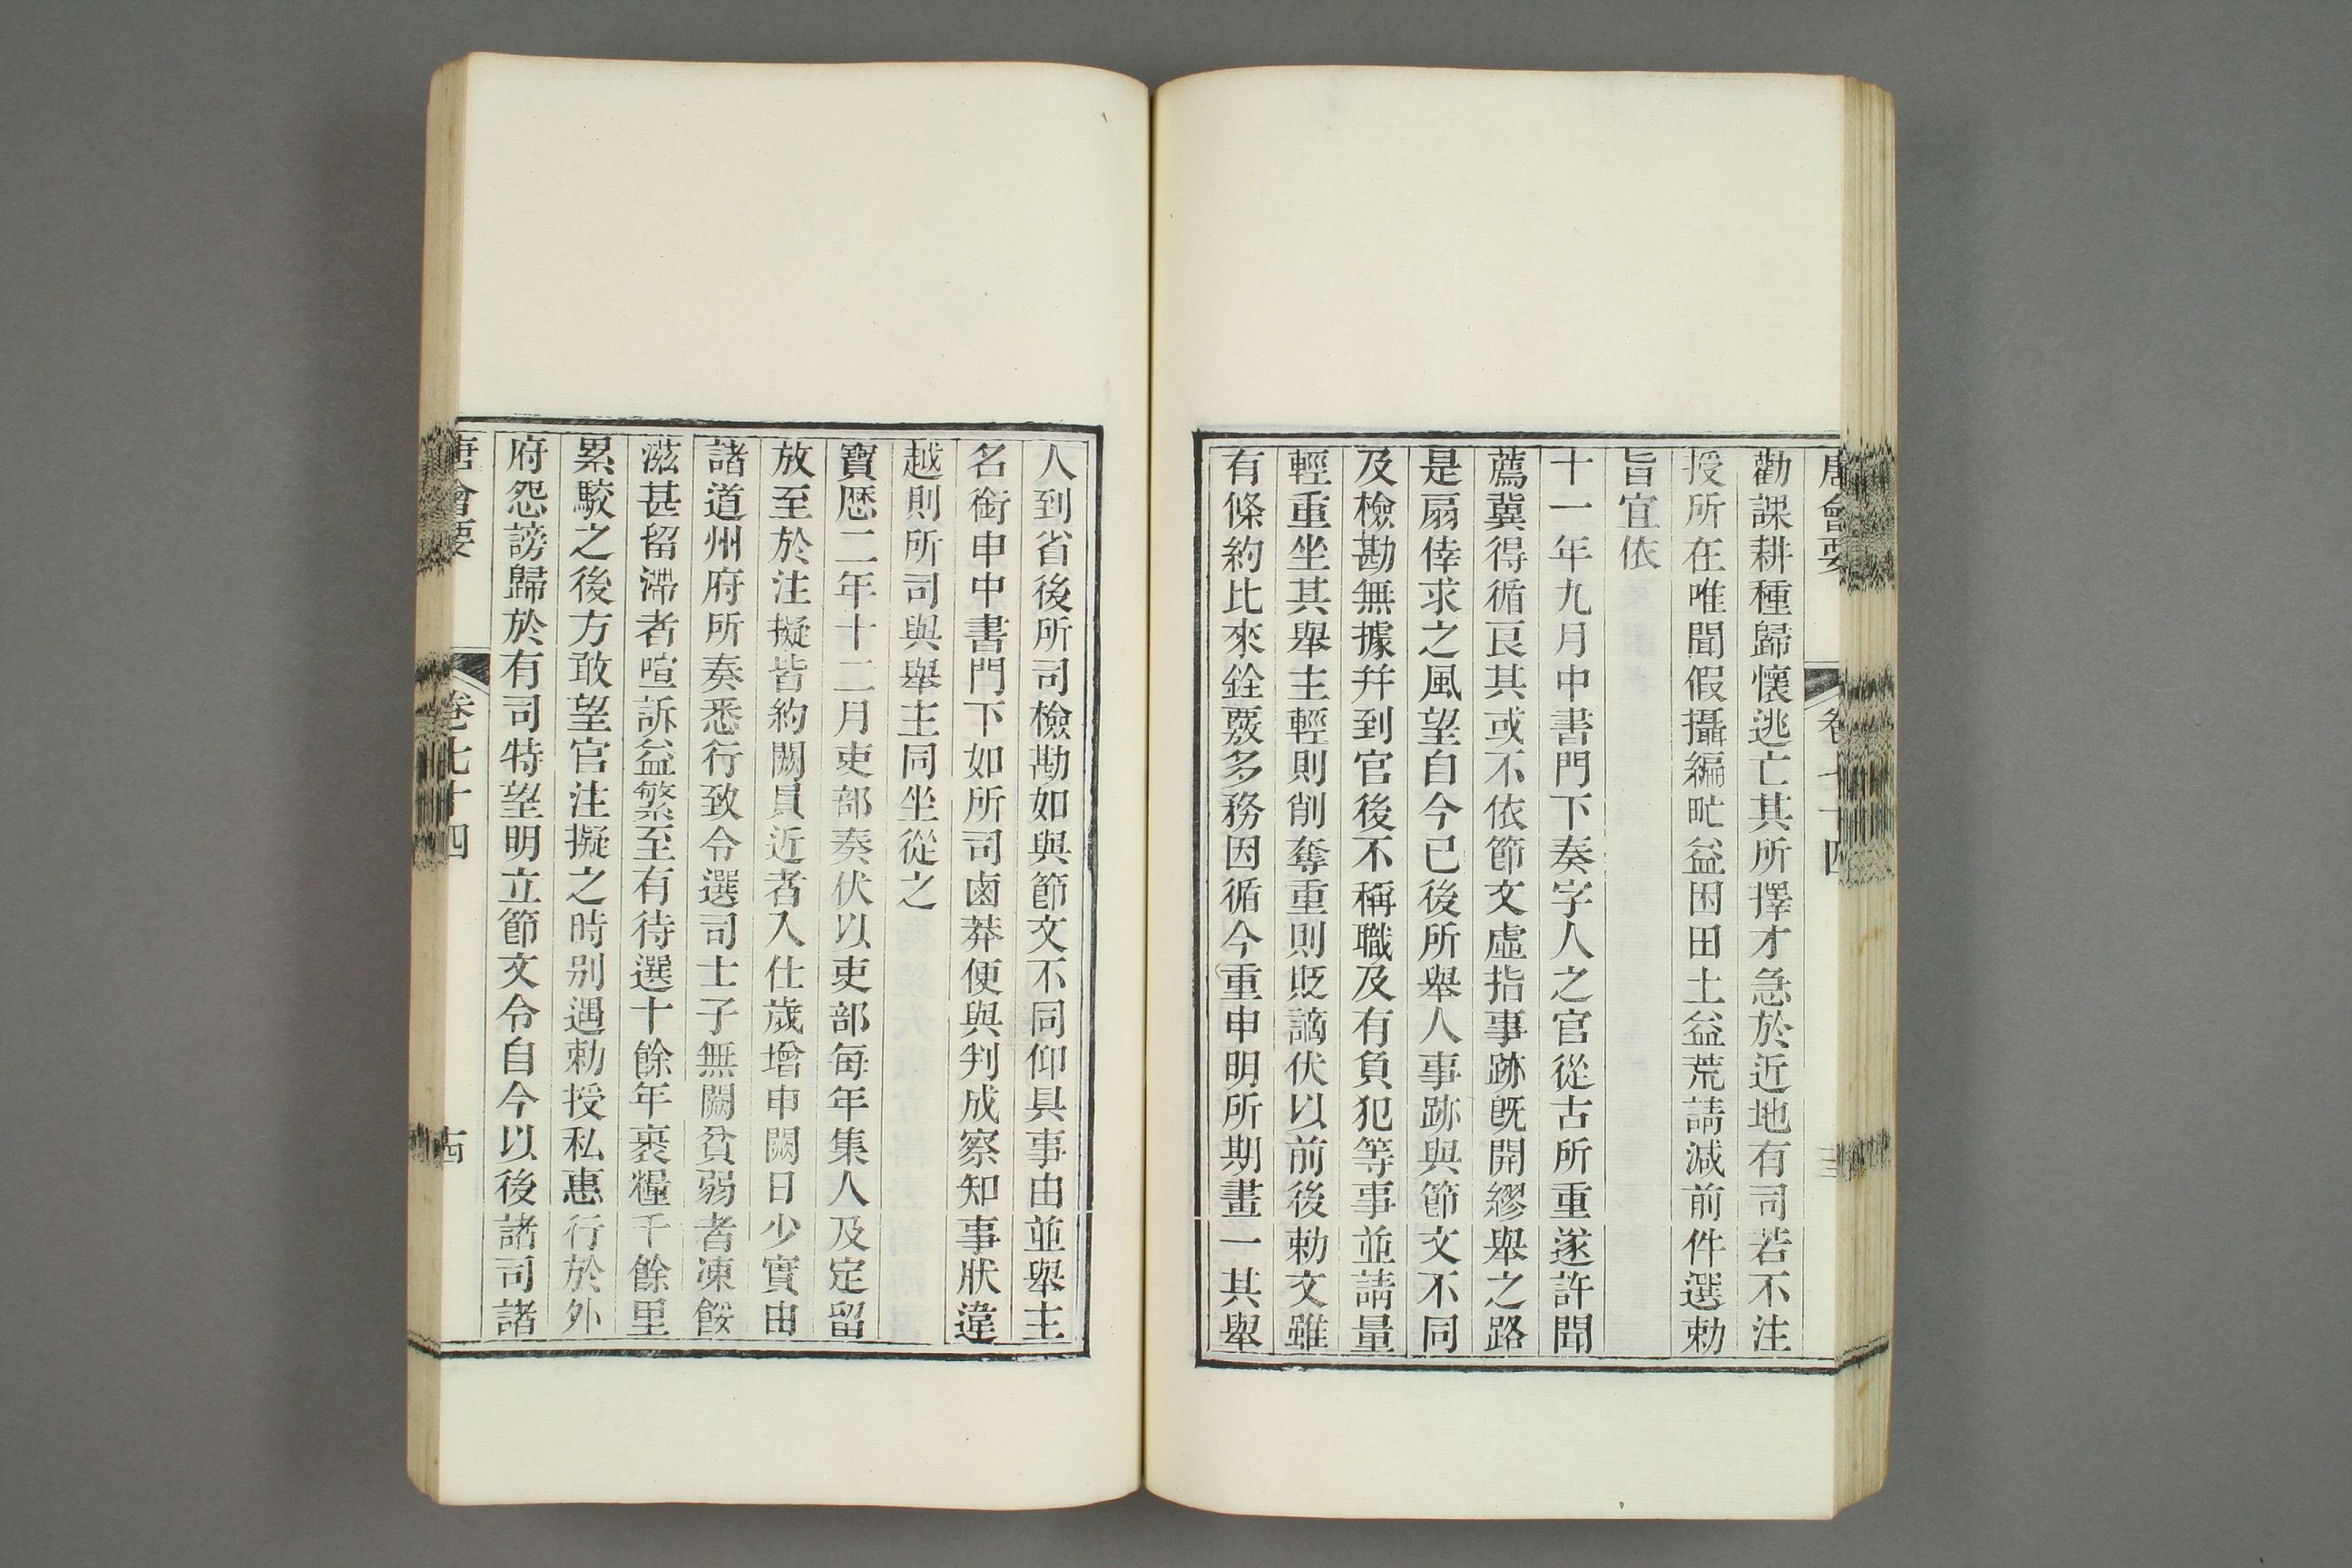 唐會要 卷七十四
勸課耕種歸懷逃亡其所擇才急於近地有司若不注
授所在唯聞假攝編甿益困田土益荒請減前件選勅
旨宜依
十一年九月中書門下奏字人之官從古所重遂許聞
薦冀得循良其或不依節文虛指事跡旣開繆舉之路
是扇倖求之風望自今已後所舉人事跡與節文不同
及檢勘無據幷到官後不稱職及有負犯等事並請量
輕重坐其舉主輕則削奪重則貶謫伏以前後勅文雖
有條約比來銓覈多務因循今重申明所期畫一其舉
人到省後所司檢勘如與節文不同仰具事由並舉主
名銜申中書門下如所司鹵莽便與判成察知事狀違
越則所司與舉主同坐從之
寶歷二年十二月吏部奏伏以吏部每年集人及定留
放至於注擬皆約闕員近者入仕歲增申闕日少實由
諸道州府所奏悉行致令選司士子無闕貧弱者凍餒
滋甚留滯者喧訴益繁至有待選十餘年裹糧千餘里
累駮之後方敢望官注擬之時別遇勅授私惠行於外
府怨謗歸於有司特望明立節文令自今以後諸司諸
唐會要 卷七十四